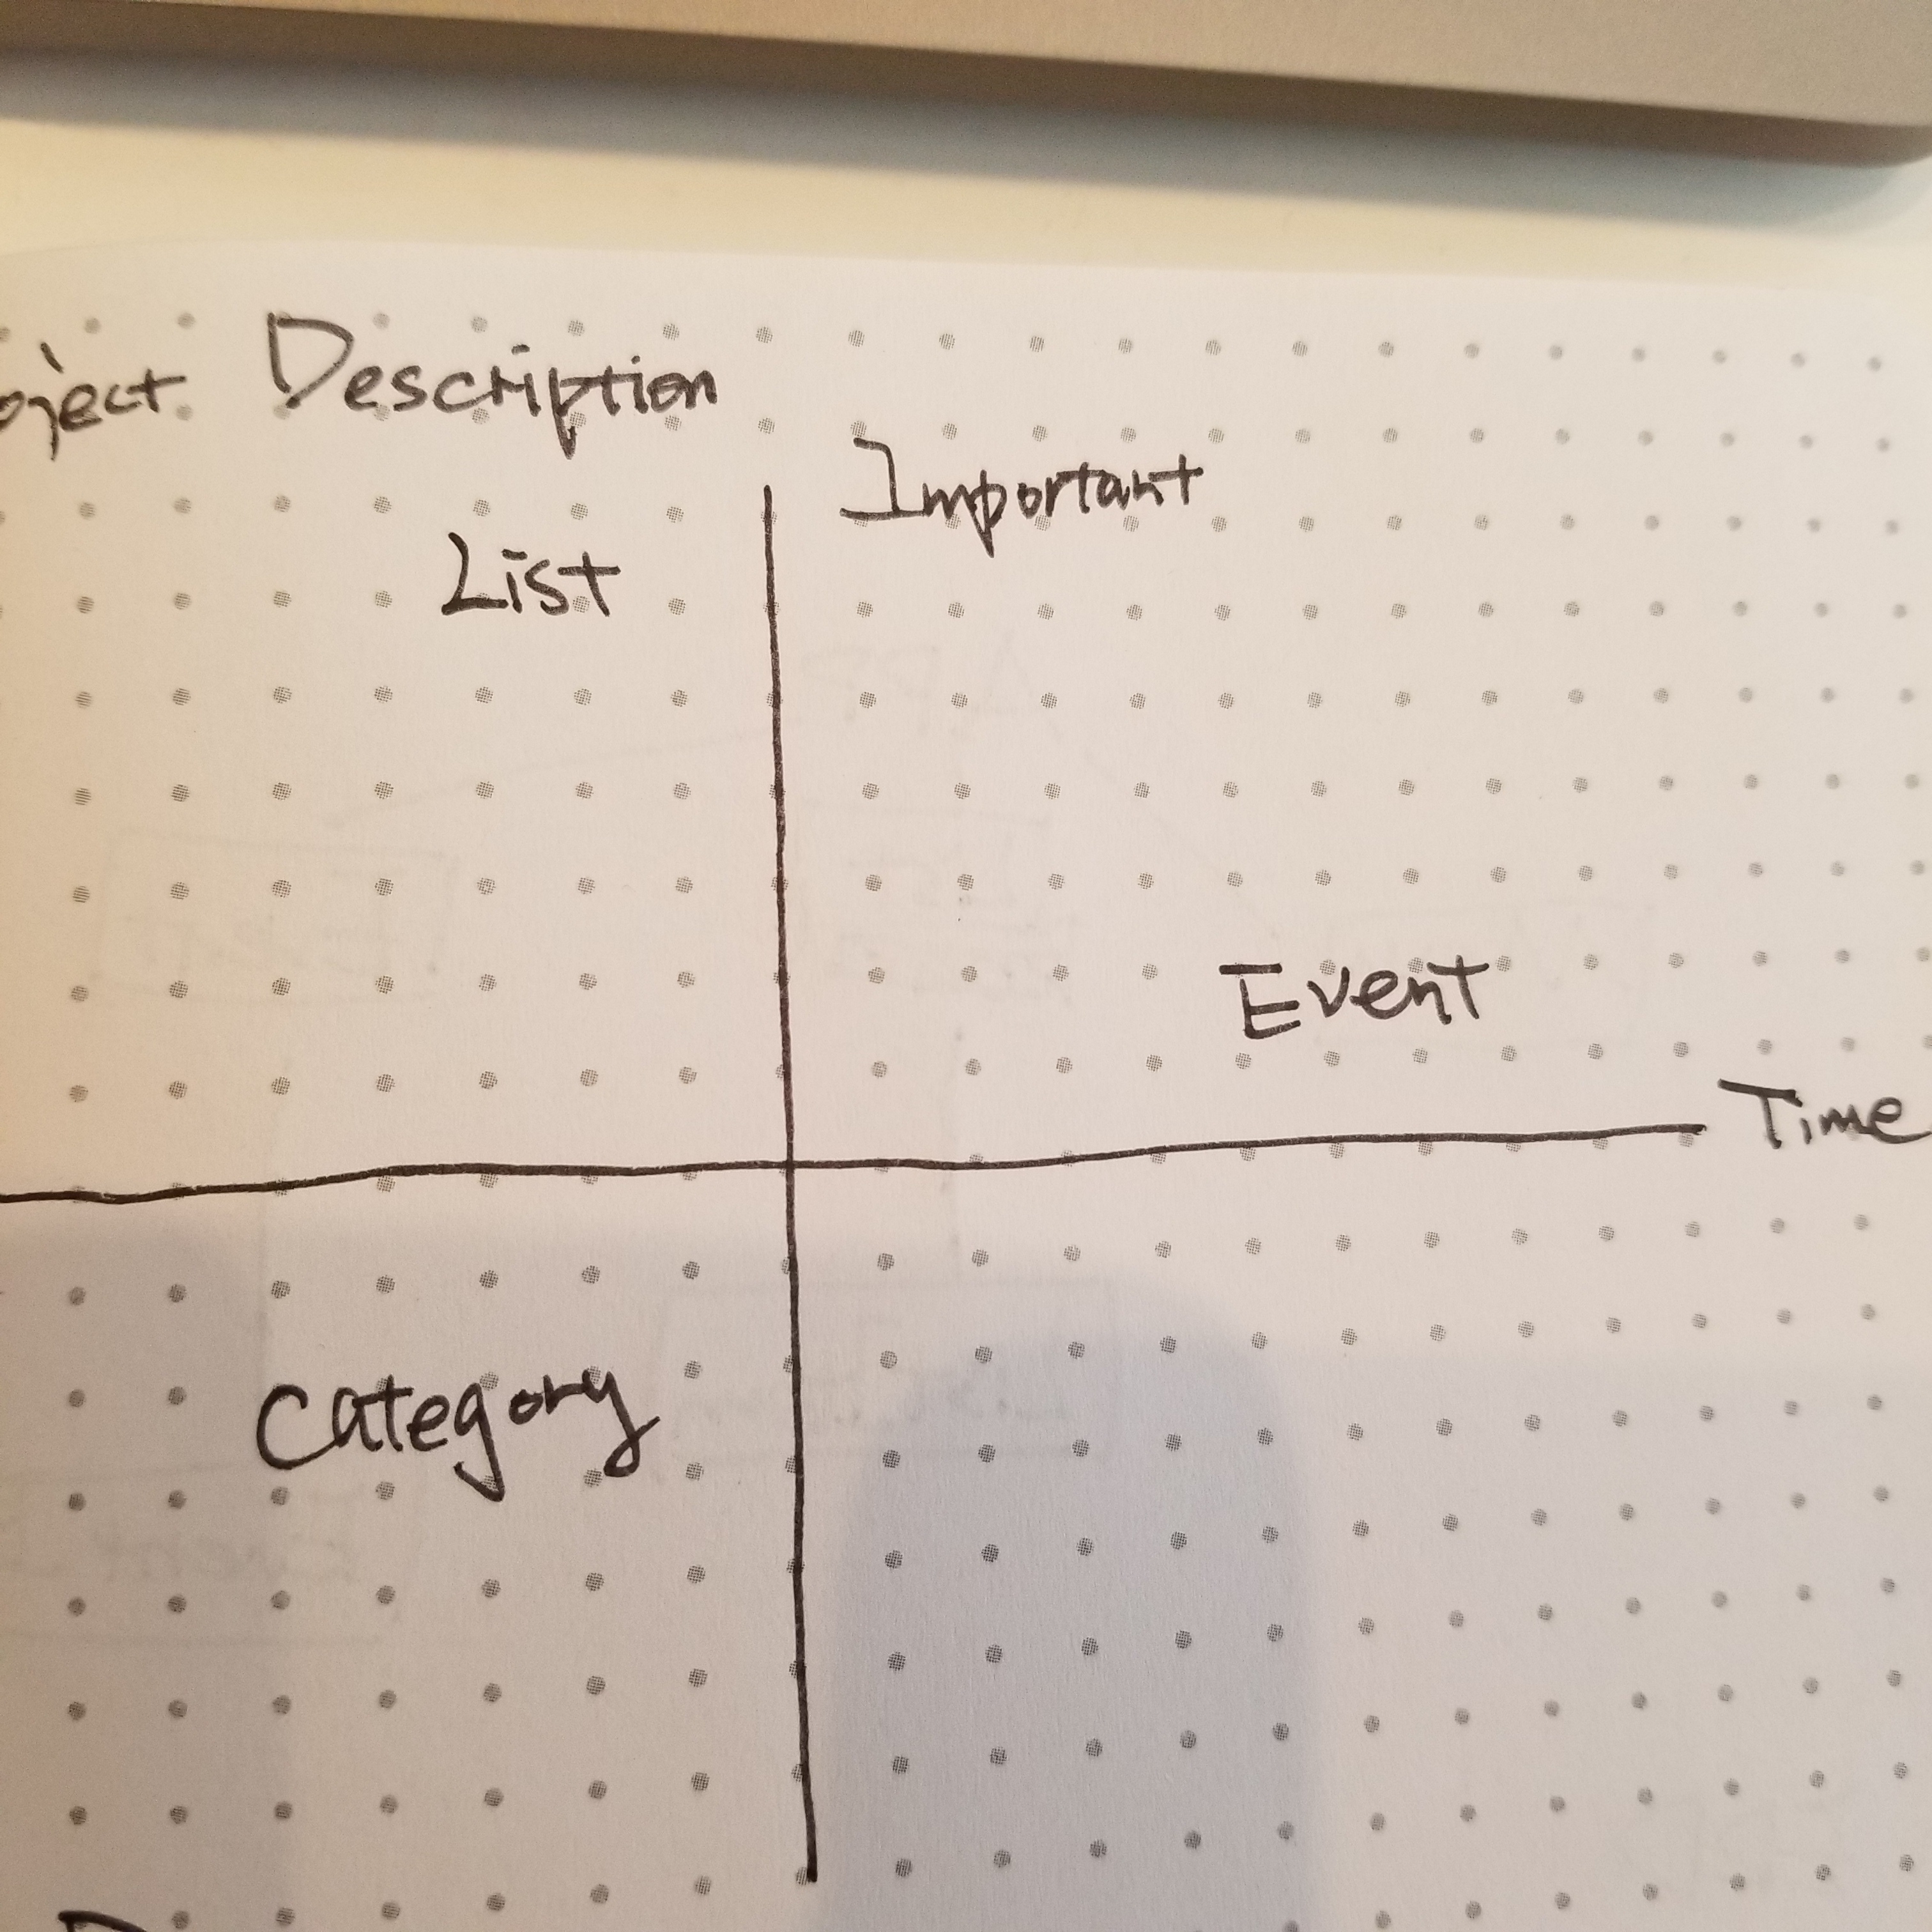 oject Description
Important
List
Event
Time
Category